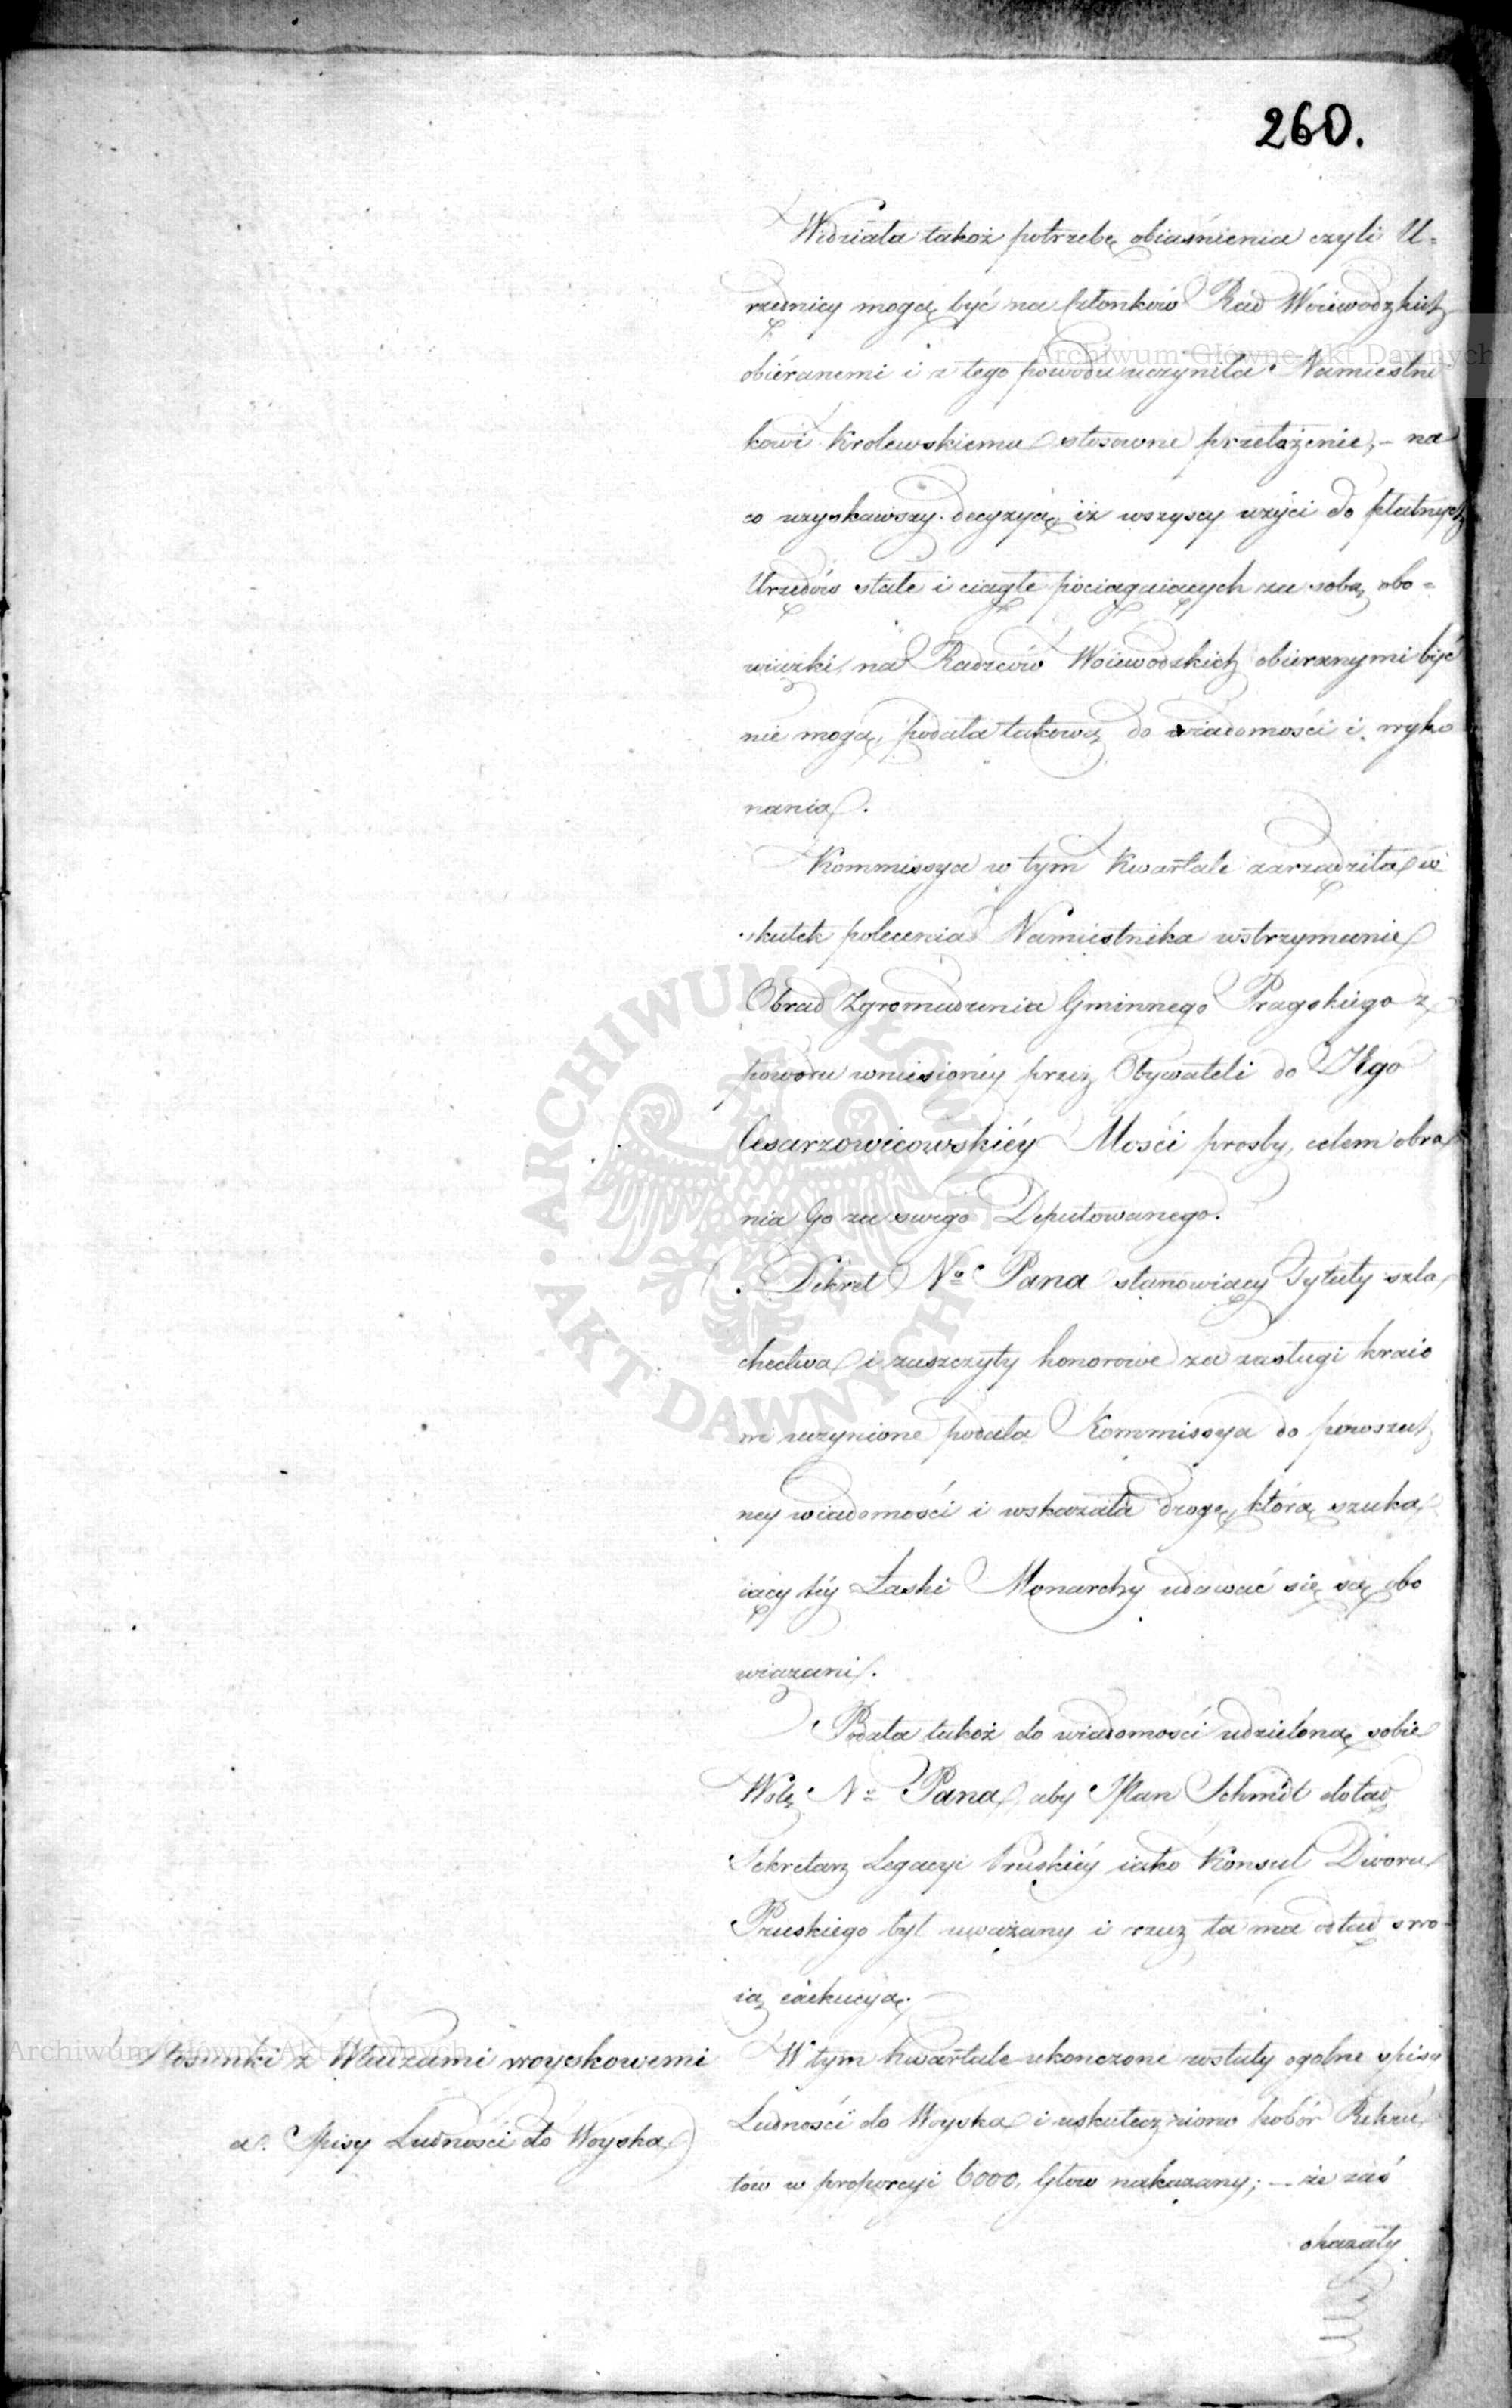 260.
Widziała takoż potrzebę obiaśnienia czyli U=
rzędnicy mogą być na Członków Rad Woiewodzkich
obiéranemi i z tego powodu uczyniła Namiestni
kowi Krolewskiemu stosowne przełożenie, – na
co uzyskawszy decyzyą, iż wszyscy użyci do płatnych
Urzędów stale i ciągle pociągaiących za sobą obo=
wiązki, na Radzców Woiewodzkich obieranymi być
nie mogą, podała takową do wiadomości i wyko
nania.
Kommissya w tym Kwartale zarządziła w
skutek polecenia Namiestnika wstrzymanie
Obrad Zgromadzenia Gminnego Pragskiego z
powodu wniesionéy przez Obywateli do JEgo
Cesarzowicowskiéy Mości prosby, celem obra
nia Go za swego Deputowanego.
Dekret No Pana stanowiący Tytuły szla
chectwa i zaszczyty honorowe za zasługi kraio
wi uczynione podała Kommissya do powszech
ney wiadomości i wskazała drogę, którą szuka
iący téy Łaski Monarchy udawać się są obo
wiązani.
Podała takoż do wiadomości udzieloną sobie
Wolą No Pana, aby JPan Schmidt dotąd
Sekretarz Legacyi Pruskiéy iako Konsul Dworu
Pruskiego był uważany i rzecz ta ma odtąd swo
ią exekucyą.
Stosunki z Władzami woyskowemi
a. Spisy Ludności do Woyska
W tym kwartale ukonczone zostały ogolne spisy
Ludności do Woyska i uskuteczniono pobór Rekru
tów w proporcyi 6000. Głow nakazany; – że zaś
okazały
Archiwum Główne Akt Dawnych
Archiwum Główne Akt Dawnych
ARCHIWUM GŁÓWNE AKT DAWNYCH